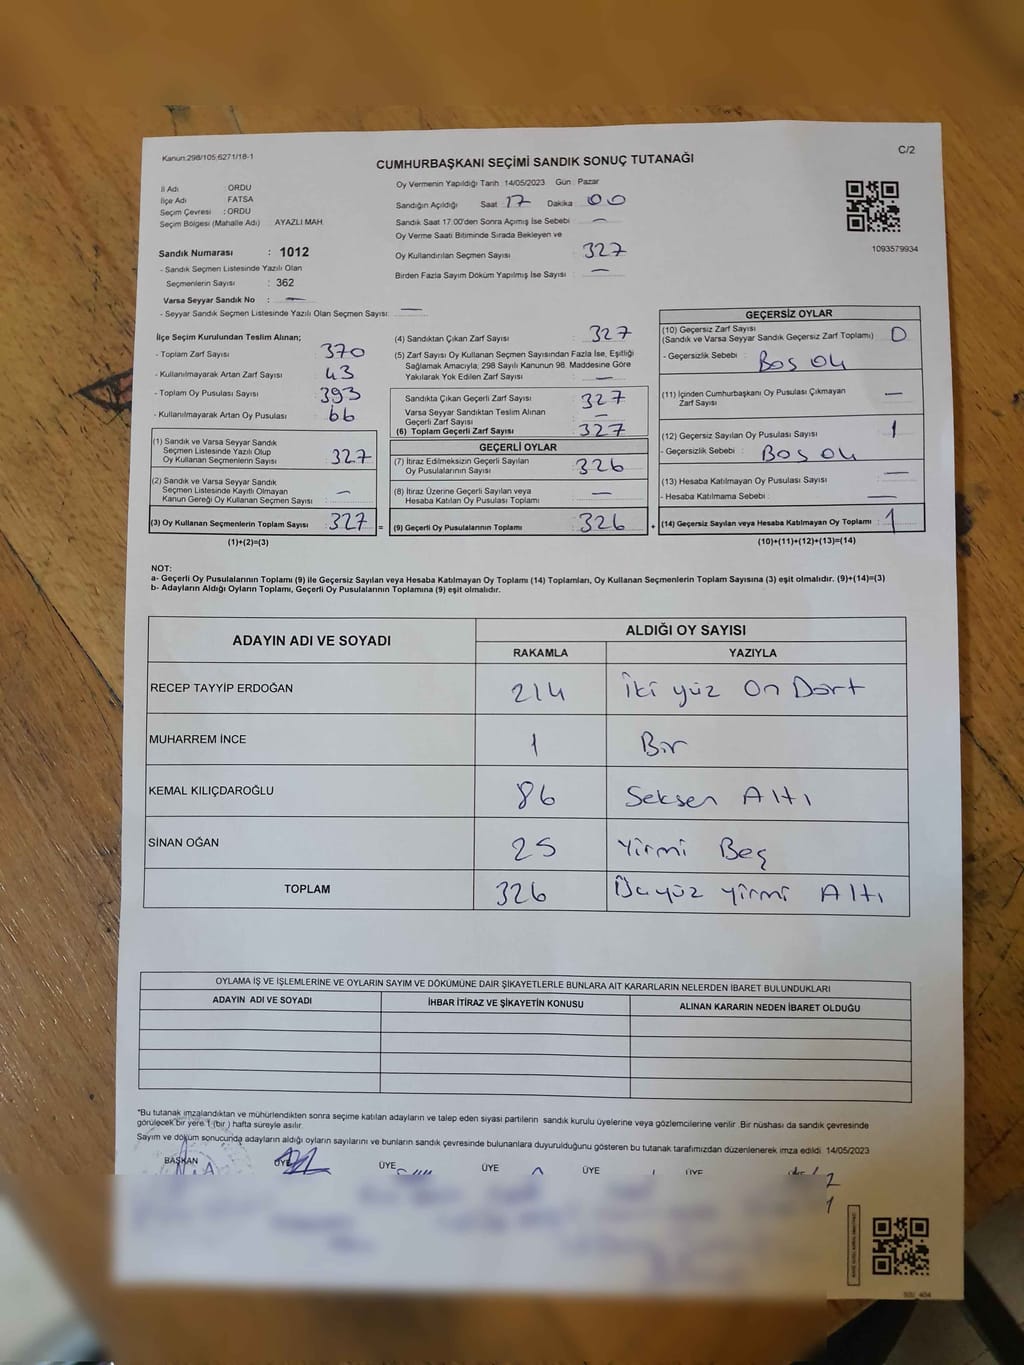 Kanun:298/105,6271/18-1
C/2
CUMHURBAŞKANI SEÇİMİ SANDIK SONUÇ TUTANAĞI
İl Adı : ORDU
İlçe Adı : FATSA
Seçim Çevresi : ORDU
Seçim Bölgesi (Mahalle Adı) AYAZLI MAH.
Sandık Numarası : 1012
- Sandık Seçmen Listesinde Yazılı Olan
Seçmenlerin Sayısı : 362
Varsa Seyyar Sandık No : —
- Seyyar Sandık Seçmen Listesinde Yazılı Olan Seçmen Sayısı: —
Oy Vermenin Yapıldığı Tarih 14/05/2023 Gün : Pazar
Sandığın Açıldığı Saat 17 Dakika 00
Sandık Saat 17:00'den Sonra Açımış İse Sebebi : —
Oy Verme Saati Bitiminde Sırada Bekleyen ve
Oy Kullandırılan Seçmen Sayısı : 327
Birden Fazla Sayım Döküm Yapılmış İse Sayısı : —
1093579934
İlçe Seçim Kurulundan Teslim Alınan;
- Toplam Zarf Sayısı : 370
- Kullanılmayarak Artan Zarf Sayısı : 43
- Toplam Oy Pusulası Sayısı : 393
- Kullanılmayarak Artan Oy Pusulası : 66
(1) Sandık ve Varsa Seyyar Sandık
Seçmen Listesinde Yazılı Olup
Oy Kullanan Seçmenlerin Sayısı : 327
(2) Sandık ve Varsa Seyyar Sandık
Seçmen Listesinde Kayıtlı Olmayan
Kanun Gereği Oy Kullanan Seçmen Sayısı : —
(3) Oy Kullanan Seçmenlerin Toplam Sayısı : 327 =
(1)+(2)=(3)
(4) Sandıktan Çıkan Zarf Sayısı : 327
(5) Zarf Sayısı Oy Kullanan Seçmen Sayısından Fazla İse, Eşitliği
Sağlamak Amacıyla, 298 Sayılı Kanunun 98. Maddesine Göre
Yakılarak Yok Edilen Zarf Sayısı : —
Sandıkta Çıkan Geçerli Zarf Sayısı : 327
Varsa Seyyar Sandıktan Teslim Alınan
Geçerli Zarf Sayısı : —
(6) Toplam Geçerli Zarf Sayısı : 327
GEÇERLİ OYLAR
(7) İtiraz Edilmeksizin Geçerli Sayılan
Oy Pusulalarının Sayısı : 326
(8) İtiraz Üzerine Geçerli Sayılan veya
Hesaba Katılan Oy Pusulası Toplamı : —
(9) Geçerli Oy Pusulalarının Toplamı : 326 +
GEÇERSİZ OYLAR
(10) Geçersiz Zarf Sayısı
(Sandık ve Varsa Seyyar Sandık Geçersiz Zarf Toplamı) : 0
- Geçersizlik Sebebi : Boş Oy
(11) İçinden Cumhurbaşkanı Oy Pusulası Çıkmayan
Zarf Sayısı : —
(12) Geçersiz Sayılan Oy Pusulası Sayısı : 1
- Geçersizlik Sebebi : Boş Oy
(13) Hesaba Katılmayan Oy Pusulası Sayısı : —
- Hesaba Katılmama Sebebi : —
(14) Geçersiz Sayılan veya Hesaba Katılmayan Oy Toplamı : 1
(10)+(11)+(12)+(13)=(14)
NOT:
a- Geçerli Oy Pusulalarının Toplamı (9) ile Geçersiz Sayılan veya Hesaba Katılmayan Oy Toplamı (14) Toplamları, Oy Kullanan Seçmenlerin Toplam Sayısına (3) eşit olmalıdır. (9)+(14)=(3)
b- Adayların Aldığı Oyların Toplamı, Geçerli Oy Pusulalarının Toplamına (9) eşit olmalıdır.
ADAYIN ADI VE SOYADI
ALDIĞI OY SAYISI
RAKAMLA YAZIYLA
RECEP TAYYİP ERDOĞAN 214 İki yüz On Dört
MUHARREM İNCE 1 Bir
KEMAL KILIÇDAROĞLU 86 Seksen Altı
SİNAN OĞAN 25 Yirmi Beş
TOPLAM 326 Üçyüz yirmi Altı
OYLAMA İŞ VE İŞLEMLERİNE VE OYLARIN SAYIM VE DÖKÜMÜNE DAİR ŞİKAYETLERLE BUNLARA AİT KARARLARIN NELERDEN İBARET BULUNDUKLARI
ADAYIN ADI VE SOYADI İHBAR İTİRAZ VE ŞİKAYETİN KONUSU ALINAN KARARIN NEDEN İBARET OLDUĞU
"Bu tutanak imzalandıktan ve mühürlendikten sonra seçime katılan adayların ve talep eden siyasi partilerin sandık kurulu üyelerine veya gözlemcilerine verilir. Bir nüshası da sandık çevresinde
görülecek bir yere 1 (bir ) hafta süreyle asılır.
Sayım ve döküm sonucunda adayların aldığı oyların sayılarını ve bunların sandık çevresinde bulunanlara duyurulduğunu gösteren bu tutanak tarafımızdan düzenlenerek imza edildi. 14/05/2023
BAŞKAN ÜYE ÜYE ÜYE ÜYE ÜYE